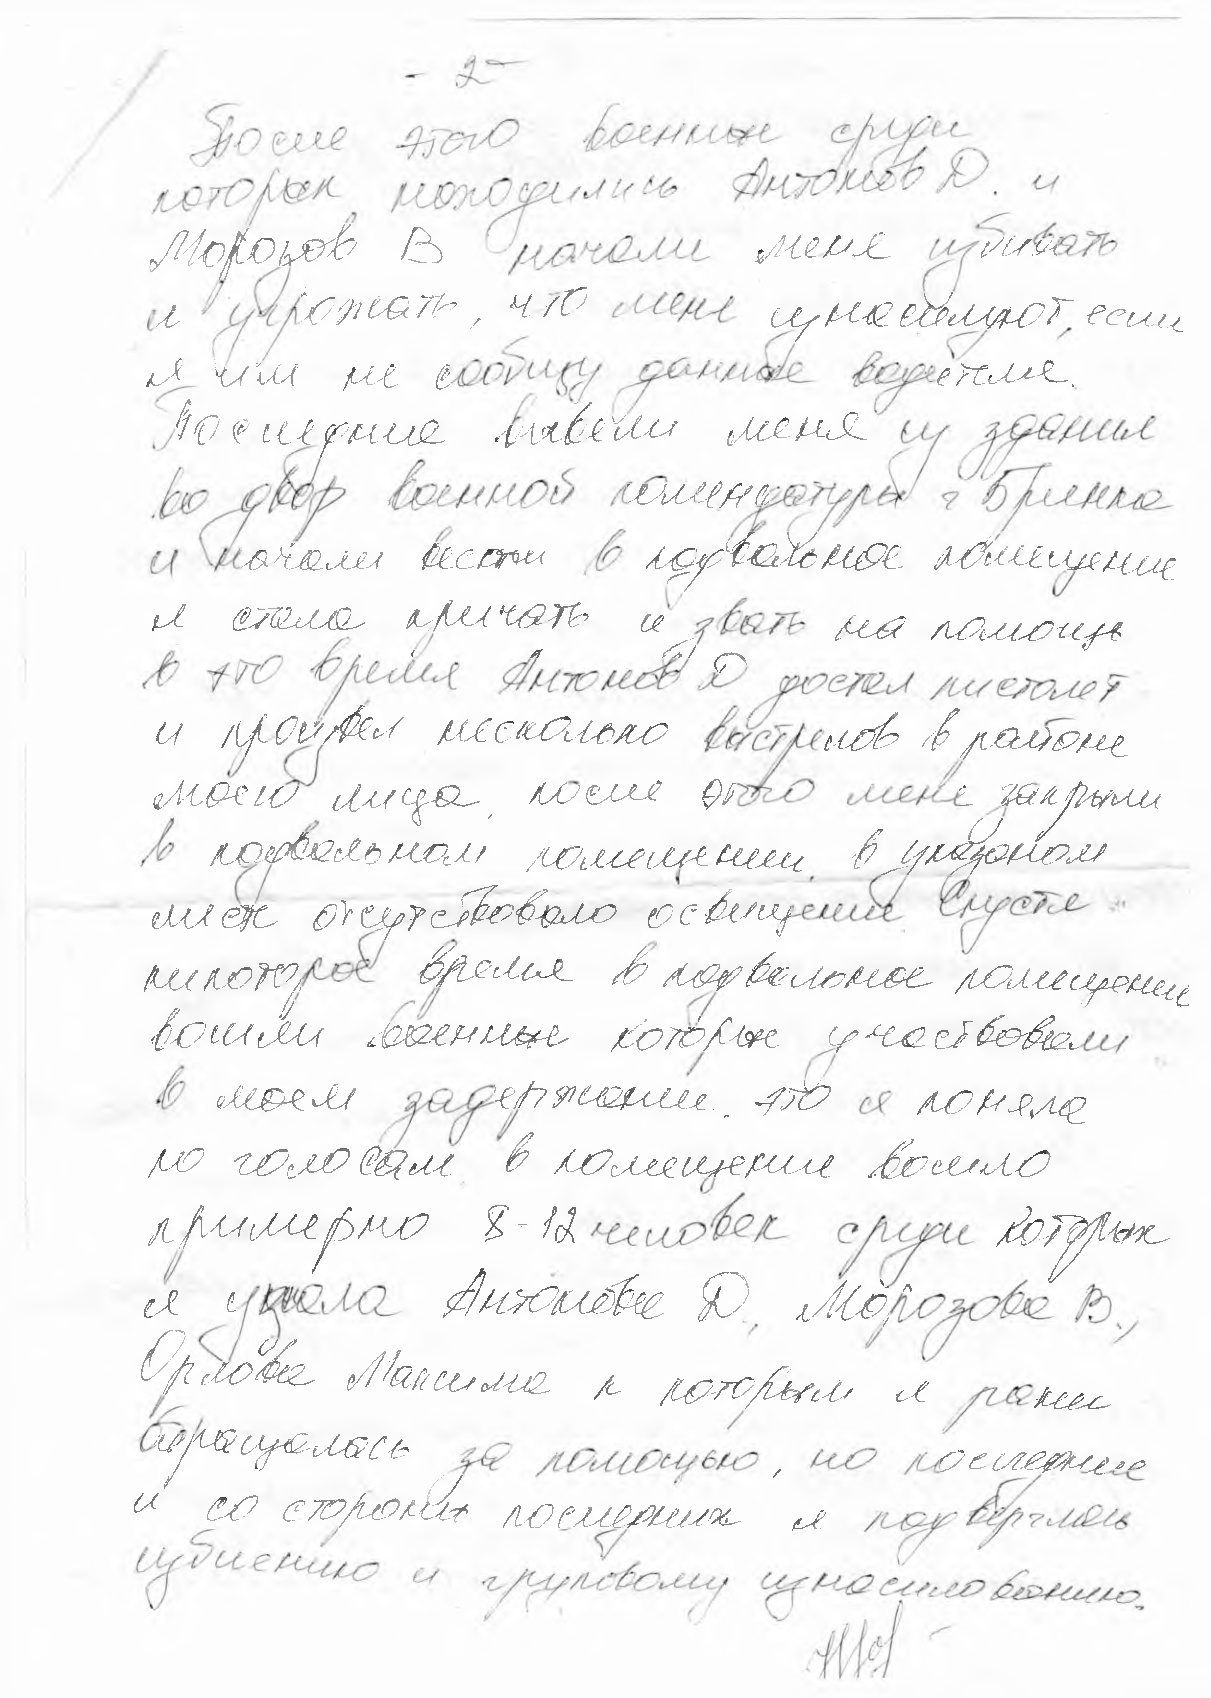 - 2 -
После этого военные среди
которых находились Антонов Д. и
Морозов В начали меня избивать
и угрожать, что меня изнасилуют, если
я им не сообщу данные водителя.
Последние вывели меня из здания
во двор военной комендатуры г Брянка
и начали вести в подвальное помещение
я стала кричать и звать на помощь
в это время Антонов Д достал пистолет
и произвел несколько выстрелов в районе
моего лица, после этого меня закрыли
в подвальном помещении, в указаном
месте отсутствовало освещение. Спустя
некоторое время в подвальное помещение
вошли военные которые участвовали
в моем задержании. это я поняла
по голосам. в помещение вошло
примерно 8-12 человек среди которых
я узнала Антонова Д., Морозова В.,
Орлова Максима к которым я ранее
обращалась за помощью, но последние
и со стороны последних я подверглась
избиению и груповому изнасилованию.